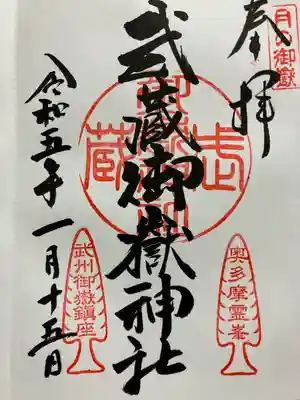 月の御嶽
奉拝
武蔵御嶽神社
奥多摩霊峯
武州御嶽鎮座
令和五年一月十五日